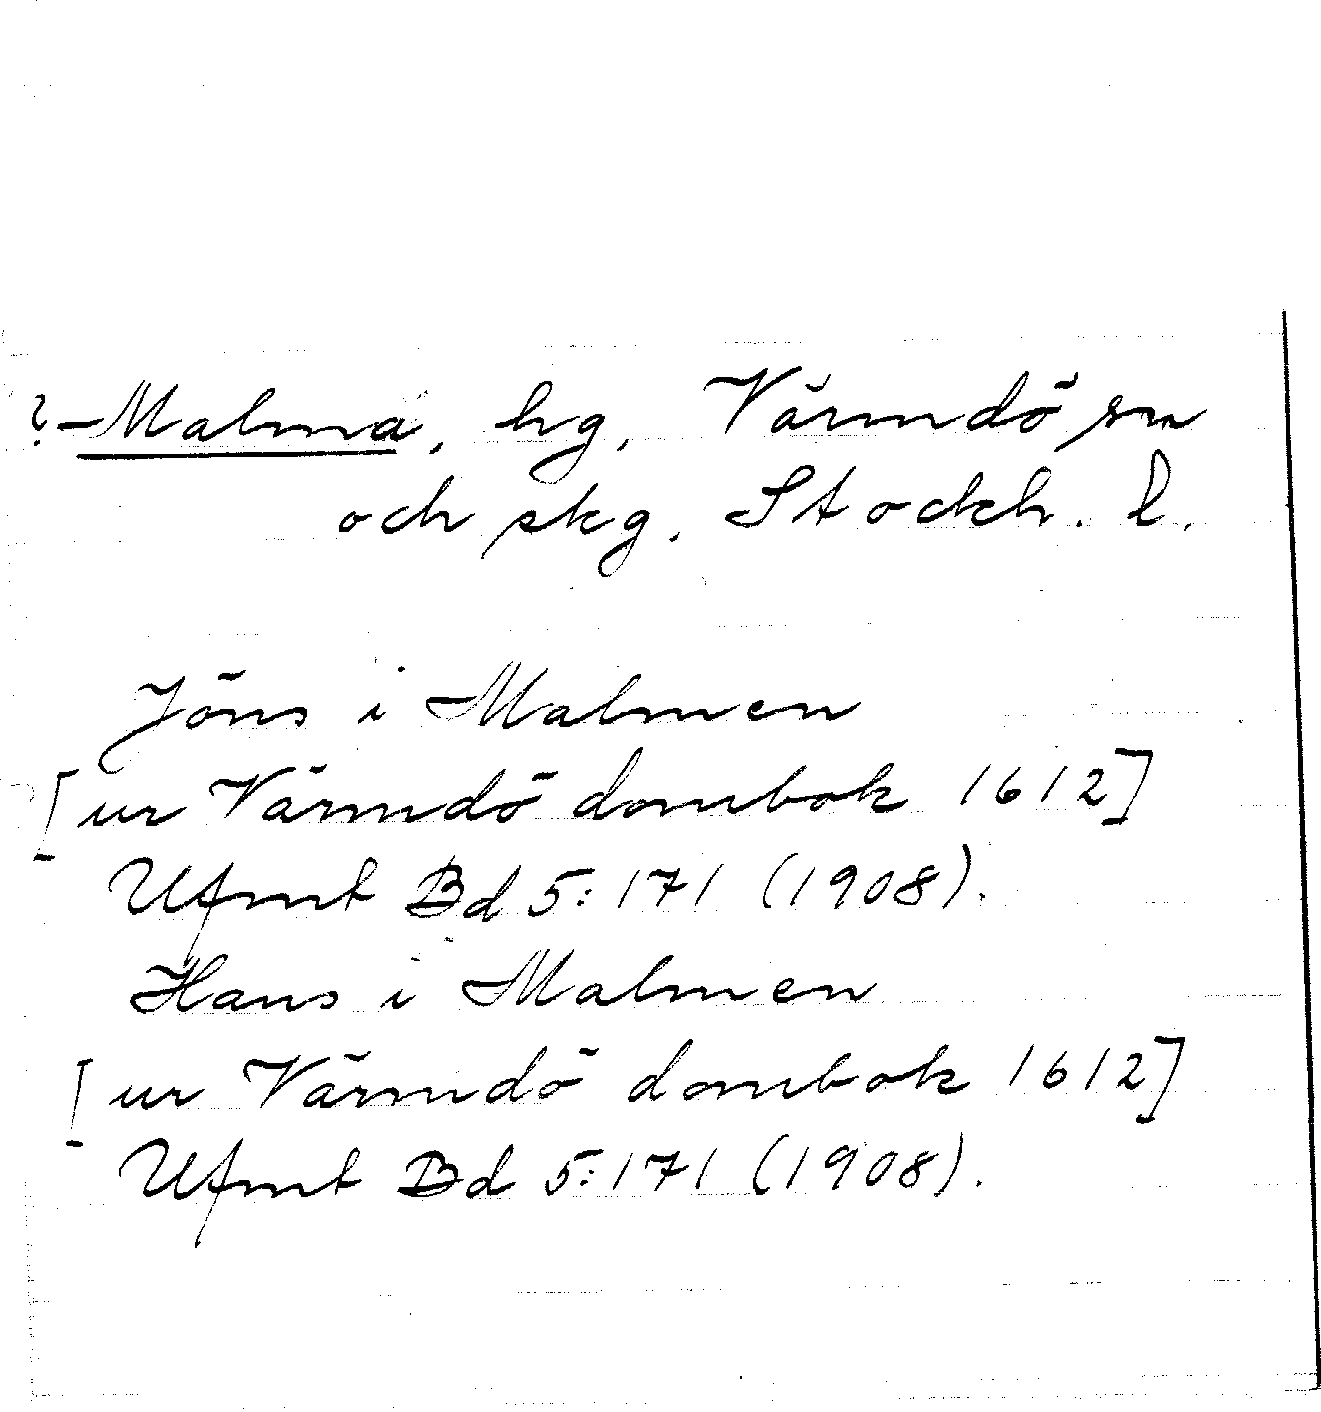 ?Malma, hg, Värmdö sn
och skg. Stockh. l.
Jöns i Malmen
[ur Värmdö dombok 1612]
Ufmt Bd 5:171 (1908).
Hans i Malmen
[ur Värmdö dombok 1612]
Ufmt Bd 5:171 (1908).